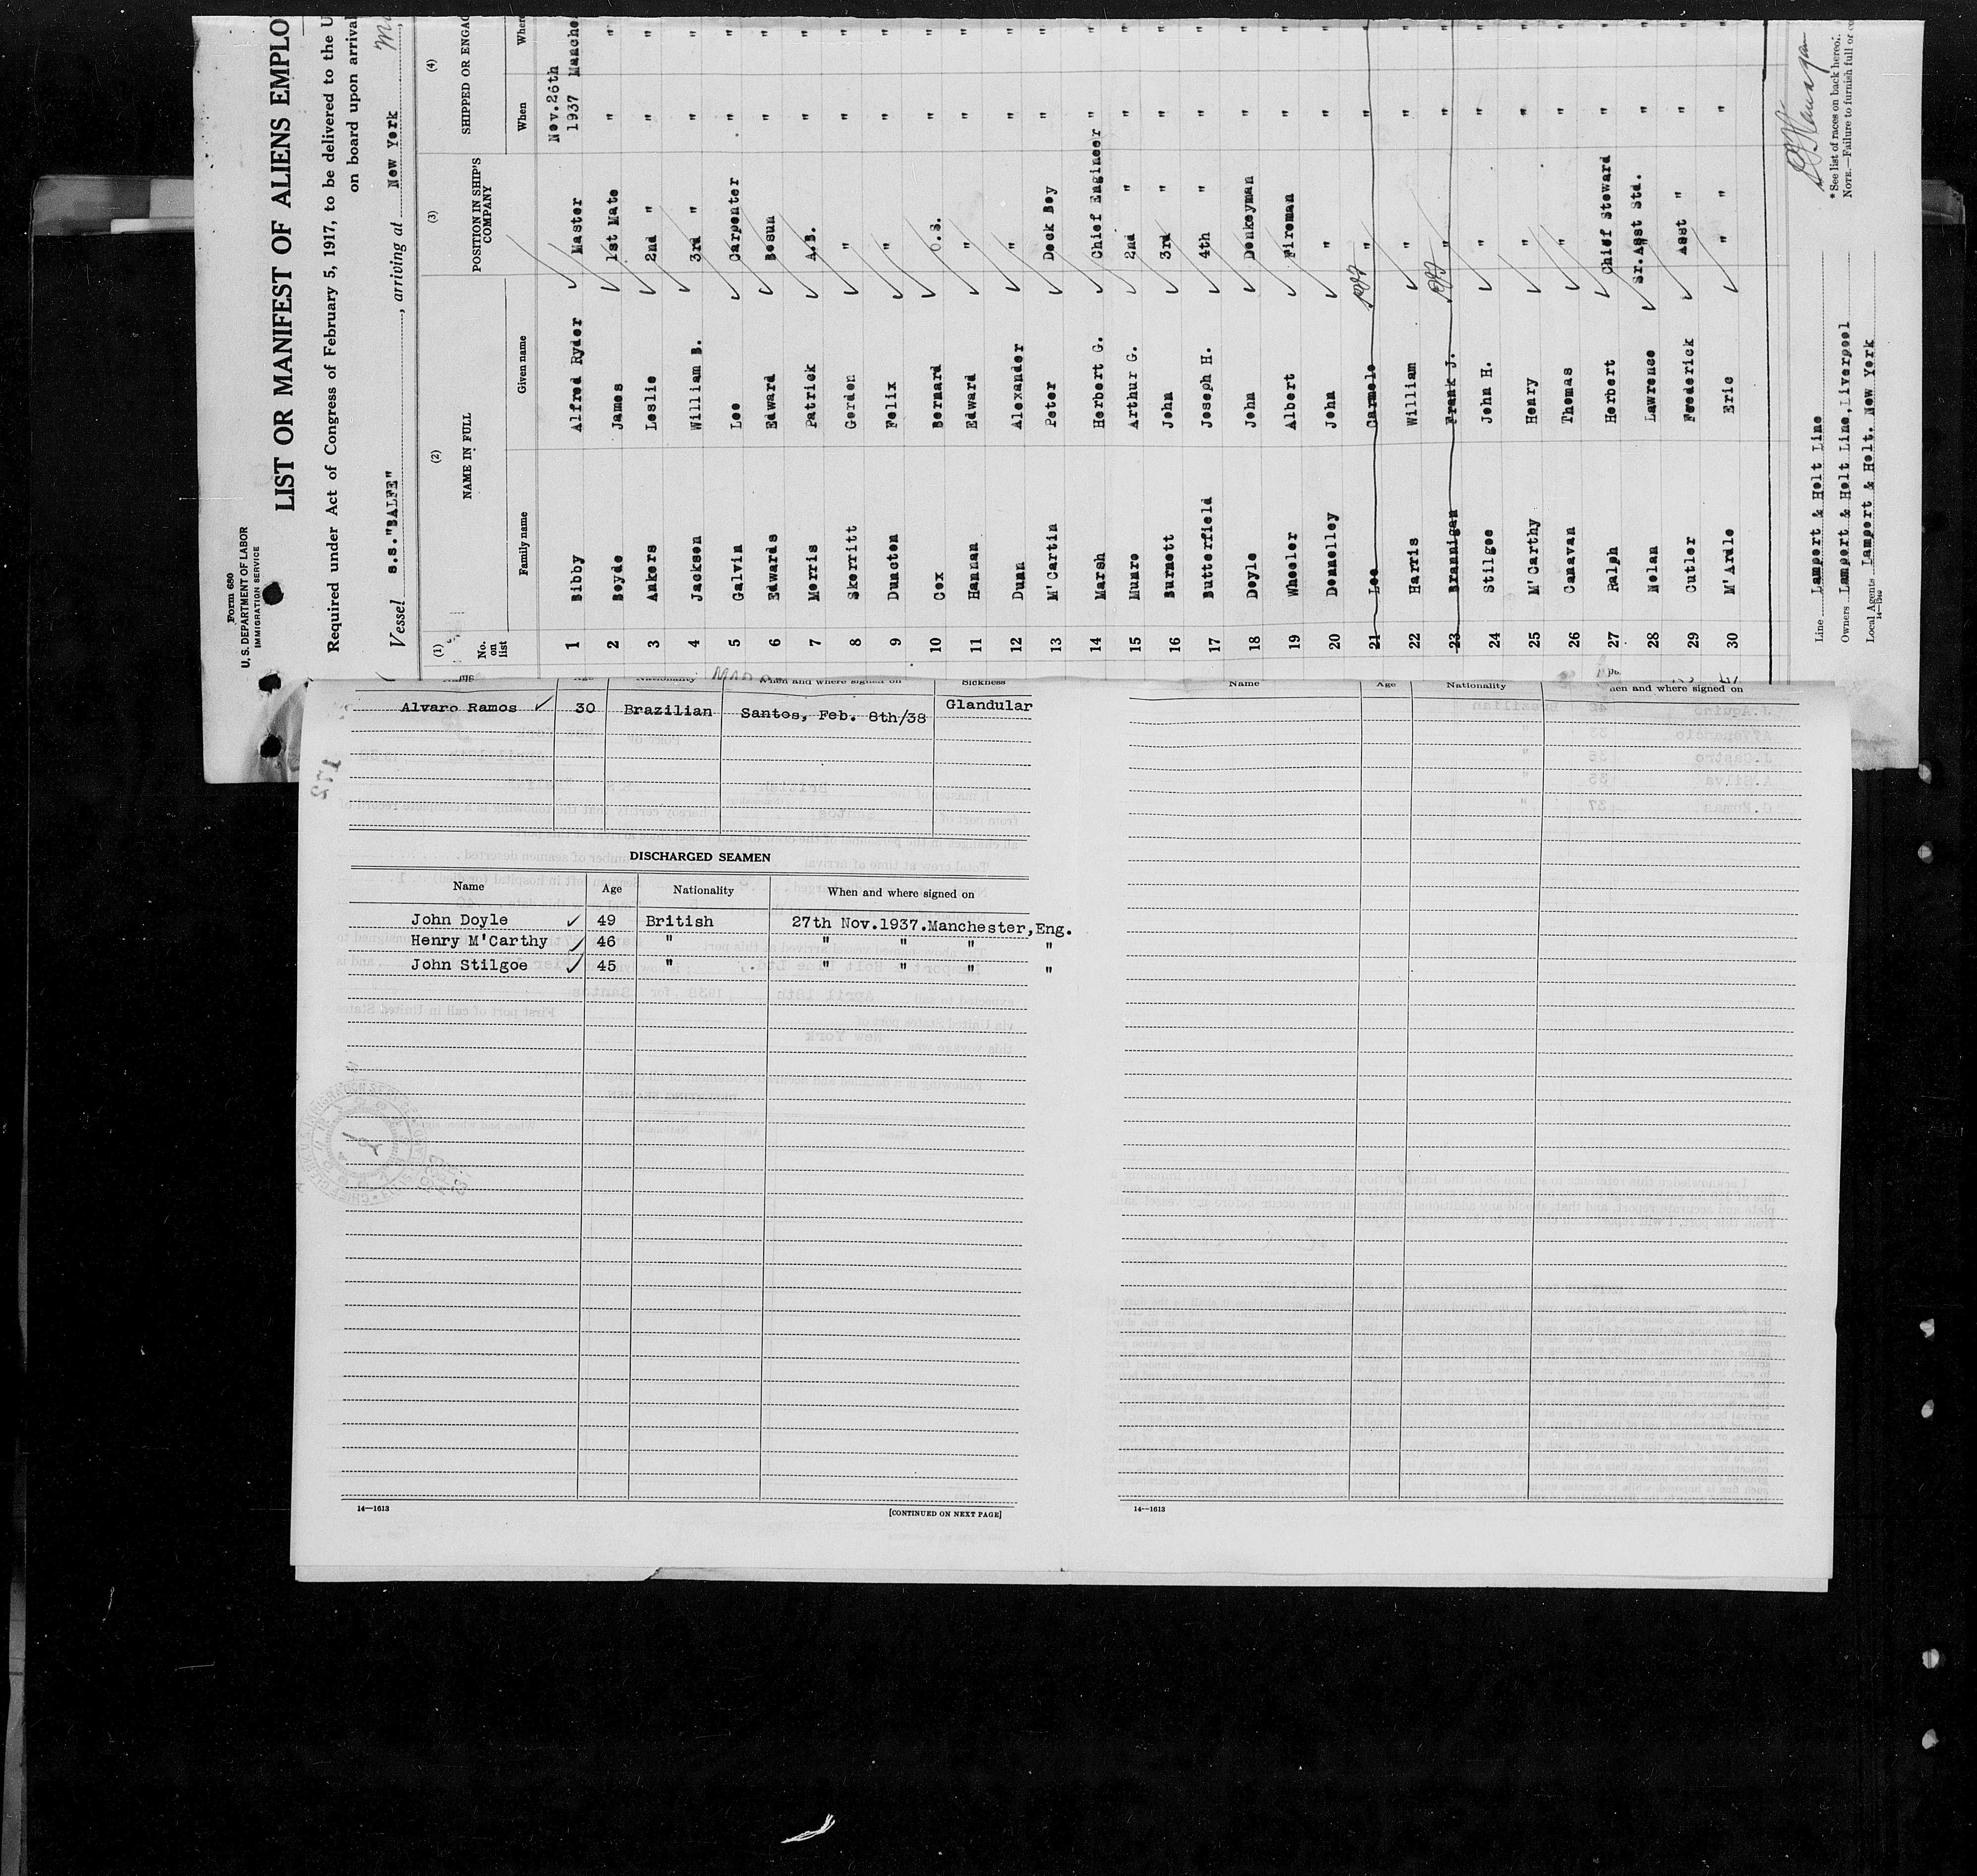 Form 680
U. S. DEPARTMENT OF LABOR
IMMIGRATION SERVICE
LIST OR MANIFEST OF ALIENS EMPLO
Required under Act of Congress of February 5, 1917, to be delivered to the U
on board upon arrival
Vessel S.S."BALFE" , arriving at New York
(1) (2) (3) (4)
No. on list NAME IN FULL POSITION IN SHIP'S COMPANY SHIPPED OR ENGAG
Family name Given name When Where
1 Bibby Alfred Ryder Master Nov.26th 1937 Manche
2 Boyde James 1st Mate " "
3 Ankers Leslie 2nd " " "
4 Jackson William B. 3rd " " "
5 Galvin Leo Carpenter " "
6 Edwards Edward Bosun " "
7 Morris Patrick A.B. " "
8 Skerritt Gordon " " "
9 Duncton Felix " " "
10 Cox Bernard O.S. " "
11 Hannan Edward " " "
12 Dunn Alexander " " "
13 M'Cartin Peter Deck Boy " "
14 Marsh Herbert G. Chief Engineer " "
15 Munro Arthur G. 2nd " " "
16 Burnett John 3rd " " "
17 Butterfield Joseph H. 4th " " "
18 Doyle John Donkeyman " "
19 Wheeler Albert Fireman " "
20 Donnelley John " " "
21 Lee Carmelo " " "
22 Harris William " " "
23 Brannigan Frank J. " " "
24 Stilgoe John H. " " "
25 M'Carthy Henry " " "
26 Canavan Thomas " " "
27 Ralph Herbert Chief Steward " "
28 Nolan Lawrence Sr.Asst Std. " "
29 Cutler Frederick Asst " " "
30 M'Ardle Eric " " " "
Line Lamport & Holt Line
Owners Lamport & Holt Line, Liverpool
Local Agents Lamport & Holt, New York
14—1240
* See list of races on back hereof.
NOTE.—Failure to furnish full or c
Age Nationality When and where signed on Sickness
Alvaro Ramos 30 Brazilian Santos, Feb. 8th/38 Glandular
DISCHARGED SEAMEN
Name Age Nationality When and where signed on
John Doyle 49 British 27th Nov.1937.Manchester,Eng.
Henry M'Carthy 46 " " " " "
John Stilgoe 45 " " " " "
14—1613 [CONTINUED ON NEXT PAGE]
Name Age Nationality hen and where signed on
14—1613